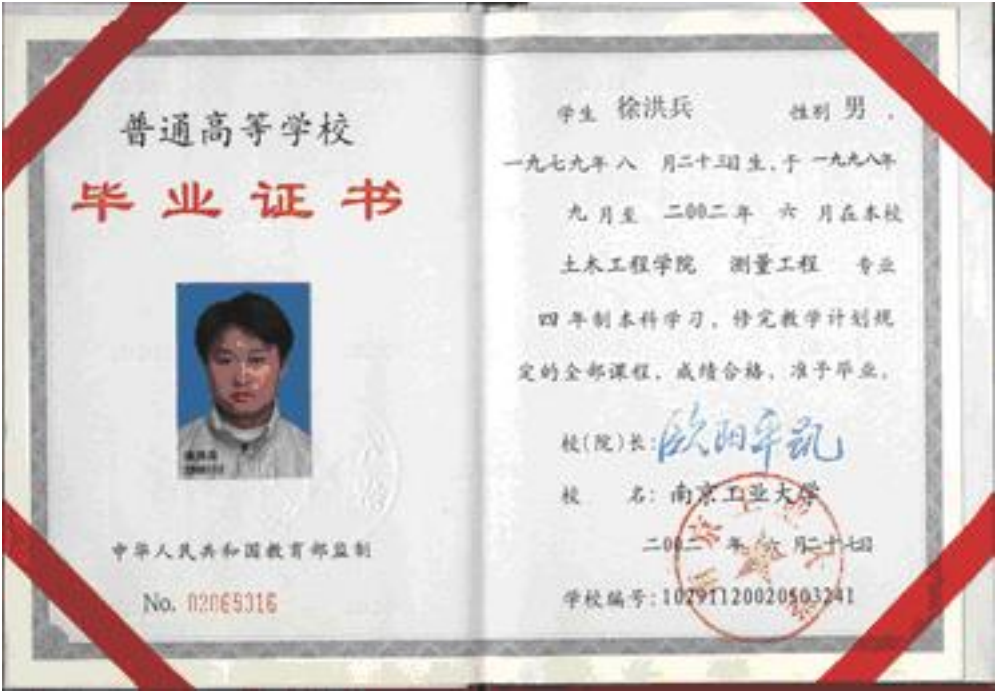 普通高等学校
毕业证书
中华人民共和国教育部监制
No. 02065316
学生 徐洪兵 性别 男 ,
一九七九年八 月二十三日生,于 一九九八年
九 月至 二00二年 六 月在本校
土木工程学院 测量工程 专业
四 年制本科学习,修完教学计划规
定的全部课程,成绩合格,准予毕业。
校(院)长:欧阳平凯
校 名:南京工业大学
二00二 年 六 月二十七日
学校编号:10291120020503241